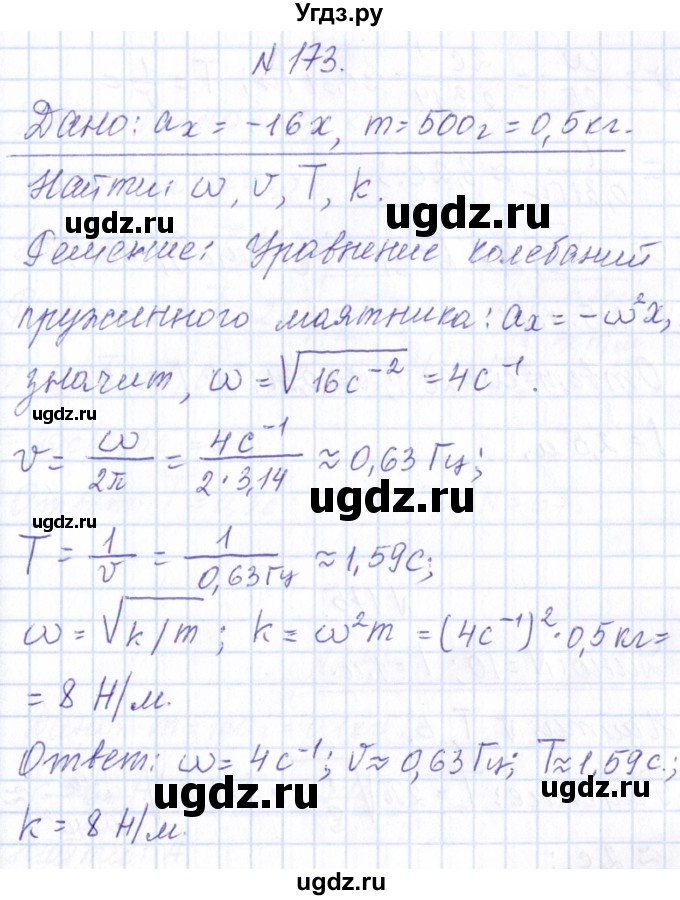 Угдз.ру
N 173.
Дано: aₓ = -16x, m = 500г = 0,5 кг.
Найти: ω, ν, T, k.
ugdz.ru ugdz.ru
Решение: Уравнение колебаний
ugdz.ru
пружинного маятника: aₓ = -ω²x,
значит, ω = √16с⁻² = 4с⁻¹.
ugdz.ru
ν = ω/2π = 4с⁻¹/2·3,14 ≈ 0,63 Гц;
ugdz.ru ugdz.ru
T = 1/ν = 1/0,63Гц ≈ 1,59с;
ω = √k/m; k = ω²m = (4с⁻¹)²·0,5кг =
ugdz.ru
= 8 Н/м.
Ответ: ω = 4с⁻¹; ν ≈ 0,63 Гц; T ≈ 1,59с.;
ugdz.ru ugdz.ru
k = 8 Н/м.
ugdz.ru
ugdz.ru